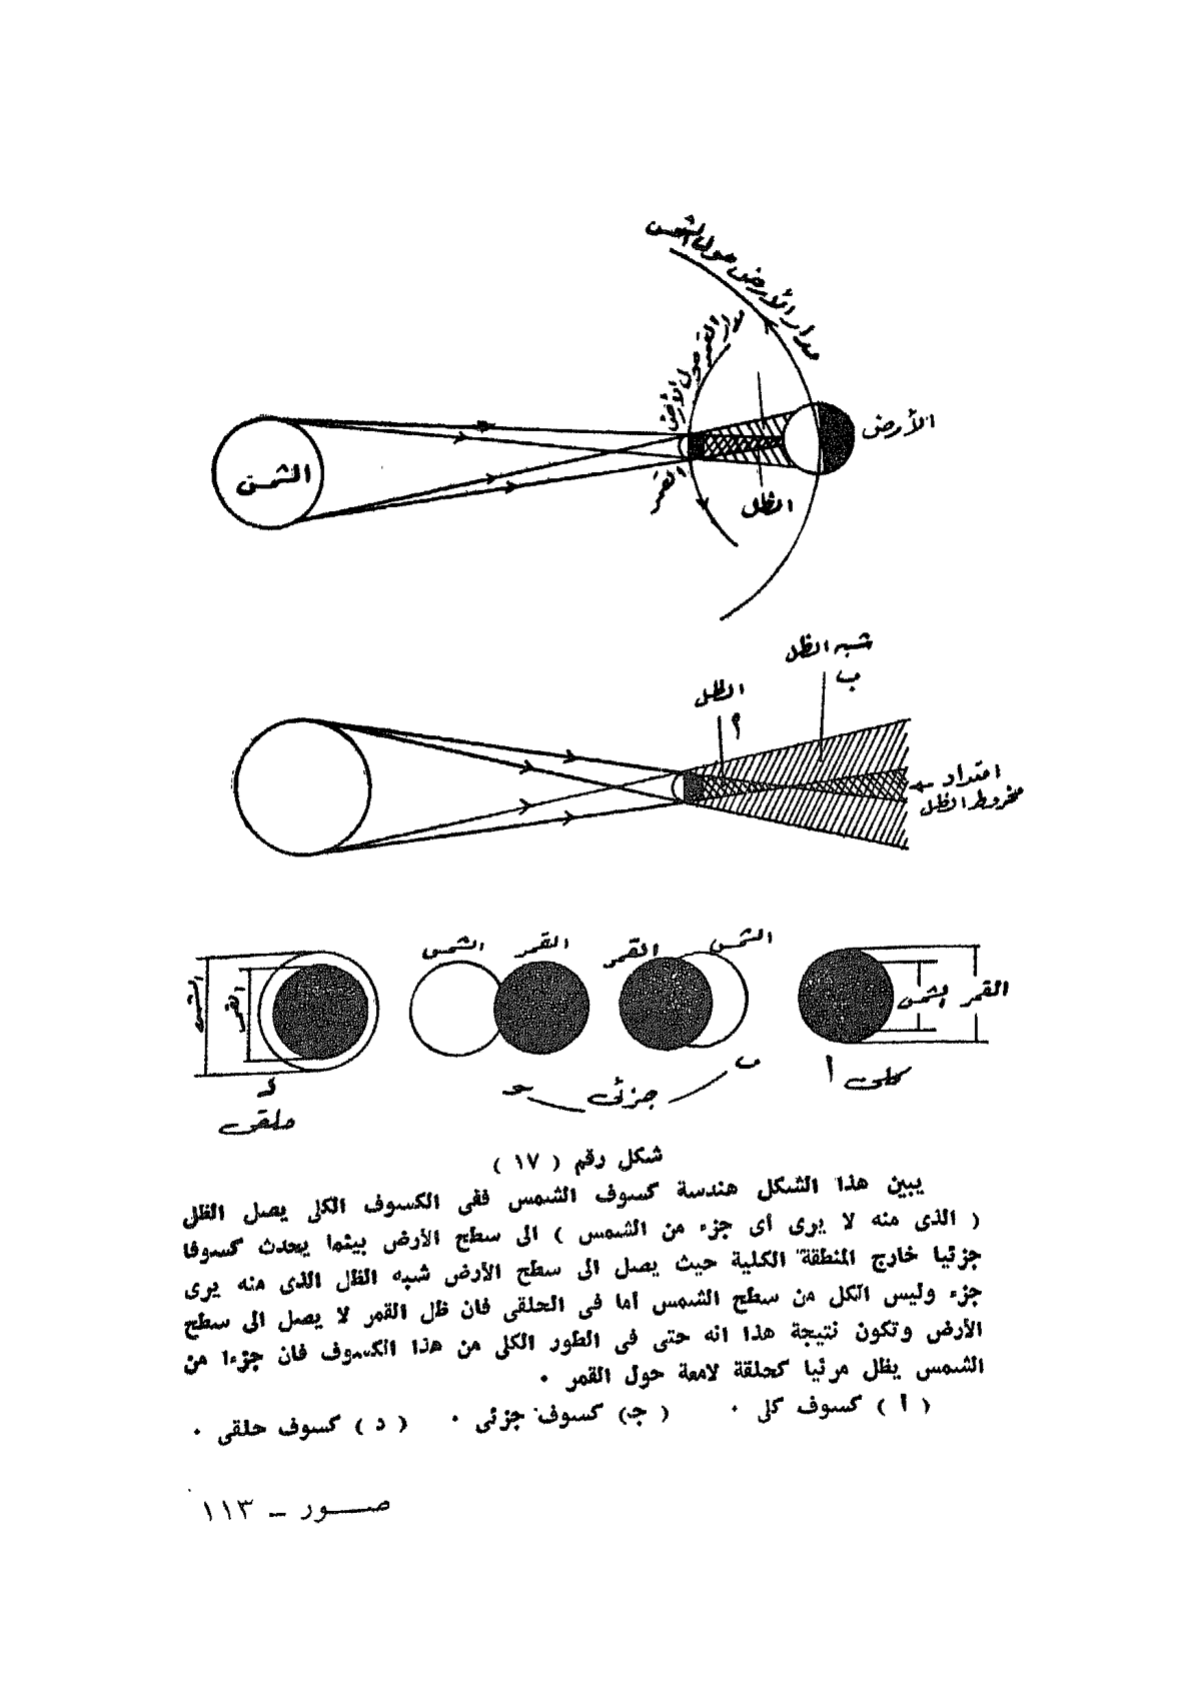 مدار الأرض حول الشمس
مدار القمر حول الأرض
الأرض
الشمس
القمر
الظل
شبه الظل
ب
الظل
أ
امتداد
مخروط الظل
الشمس
القمر
الشمس
القمر
القمر
الشمس
الشمس
القمر
كلى أ
ب
جزئى
حـ
د
حلقى
شكل رقم ( ١٧ )
يبين هذا الشكل هندسة كسوف الشمس ففى الكسوف الكلى يصل الظل
( الذى منه لا يرى أى جزء من الشمس ) الى سطح الأرض بينما يحدث كسوفا
جزئيا خارج المنطقة الكلية حيث يصل الى سطح الأرض شبه الظل الذى منه يرى
جزء وليس الكل من سطح الشمس أما فى الحلقى فان ظل القمر لا يصل الى سطح
الأرض وتكون نتيجة هذا انه حتى فى الطور الكلى من هذا الكسوف فان جزءا من
الشمس يظل مرئيا كحلقة لامعة حول القمر ٠
( أ ) كسوف كلى ٠ ( جـ) كسوف جزئى ٠ ( د ) كسوف حلقى ٠
صــور ـ ١١٣